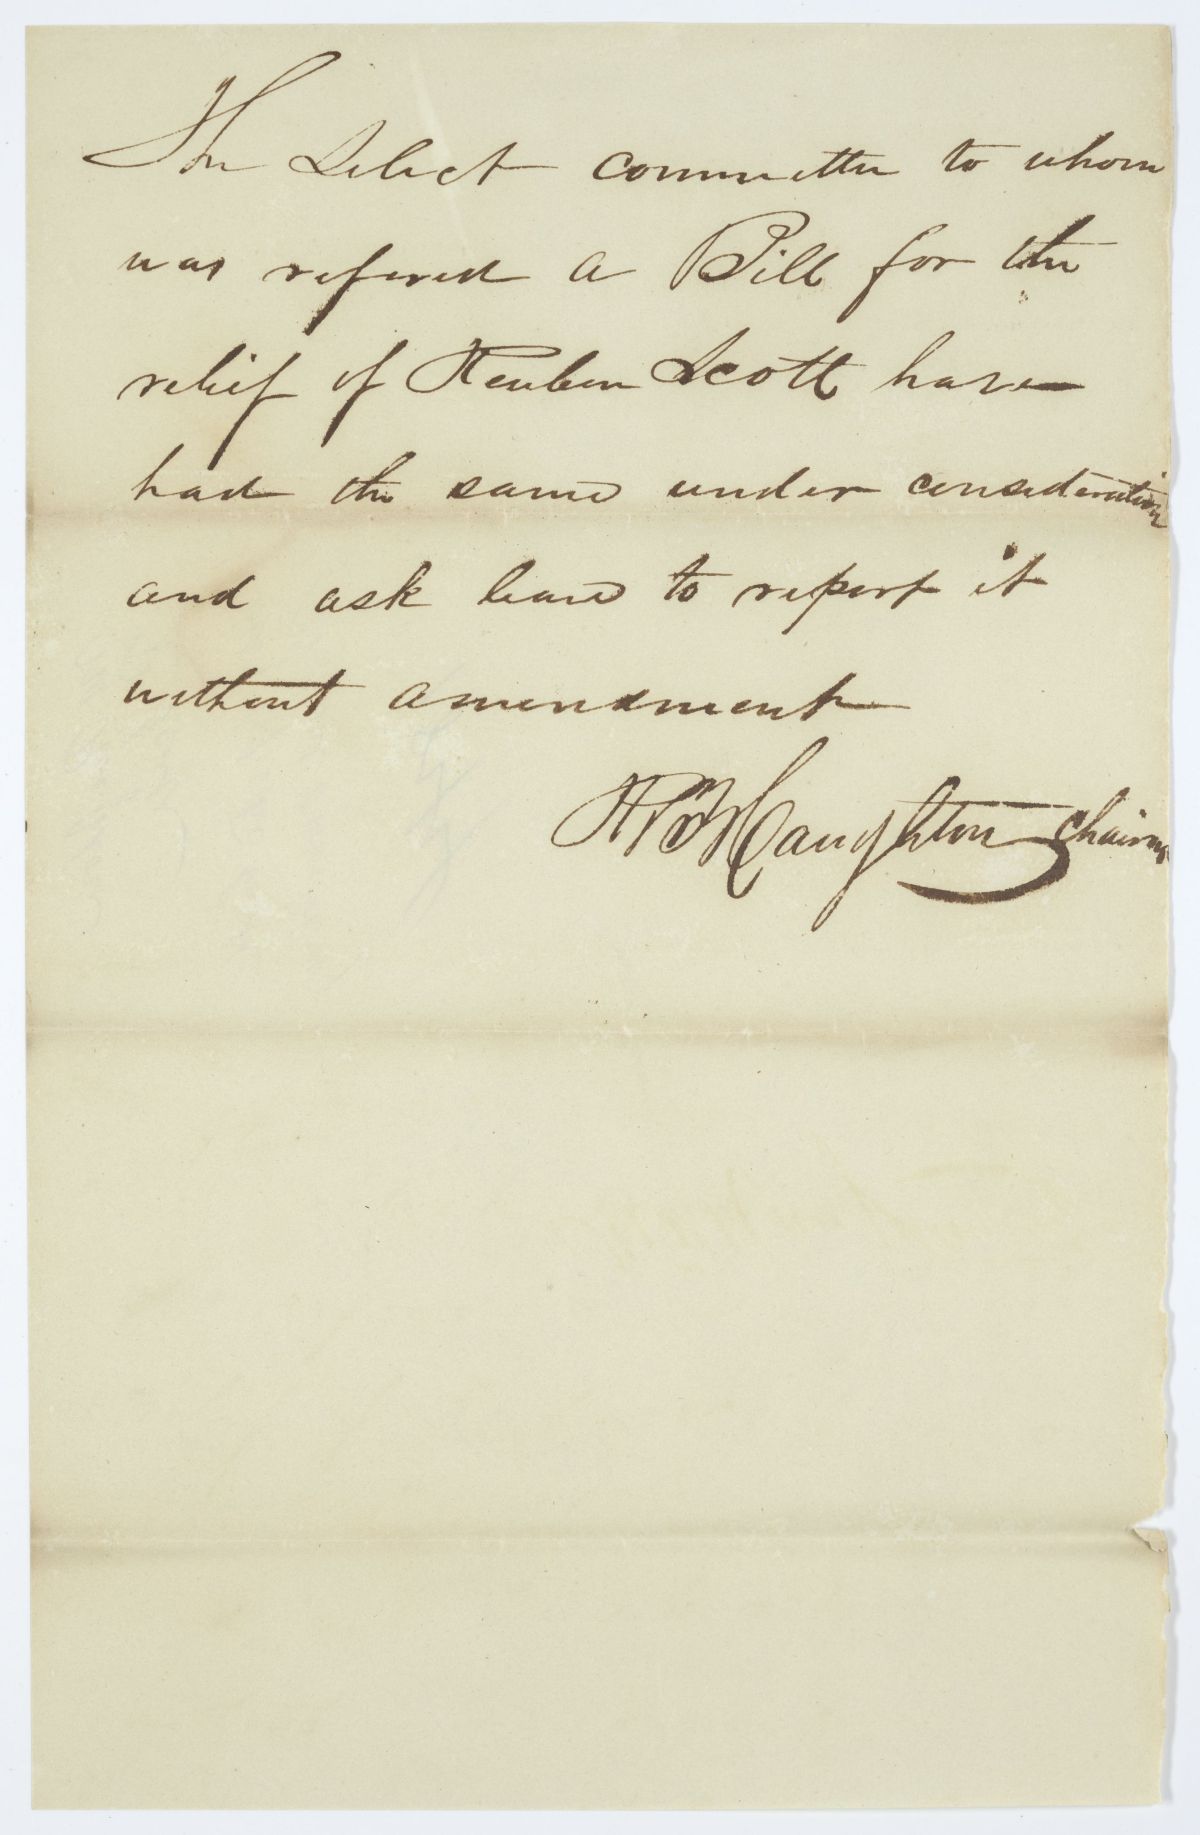 The Select committee to whom
was refered a Bill for the
relief of Reuben Scott have
had the same under consideration
and ask leave to report it
without amendment
Haughton Chairm